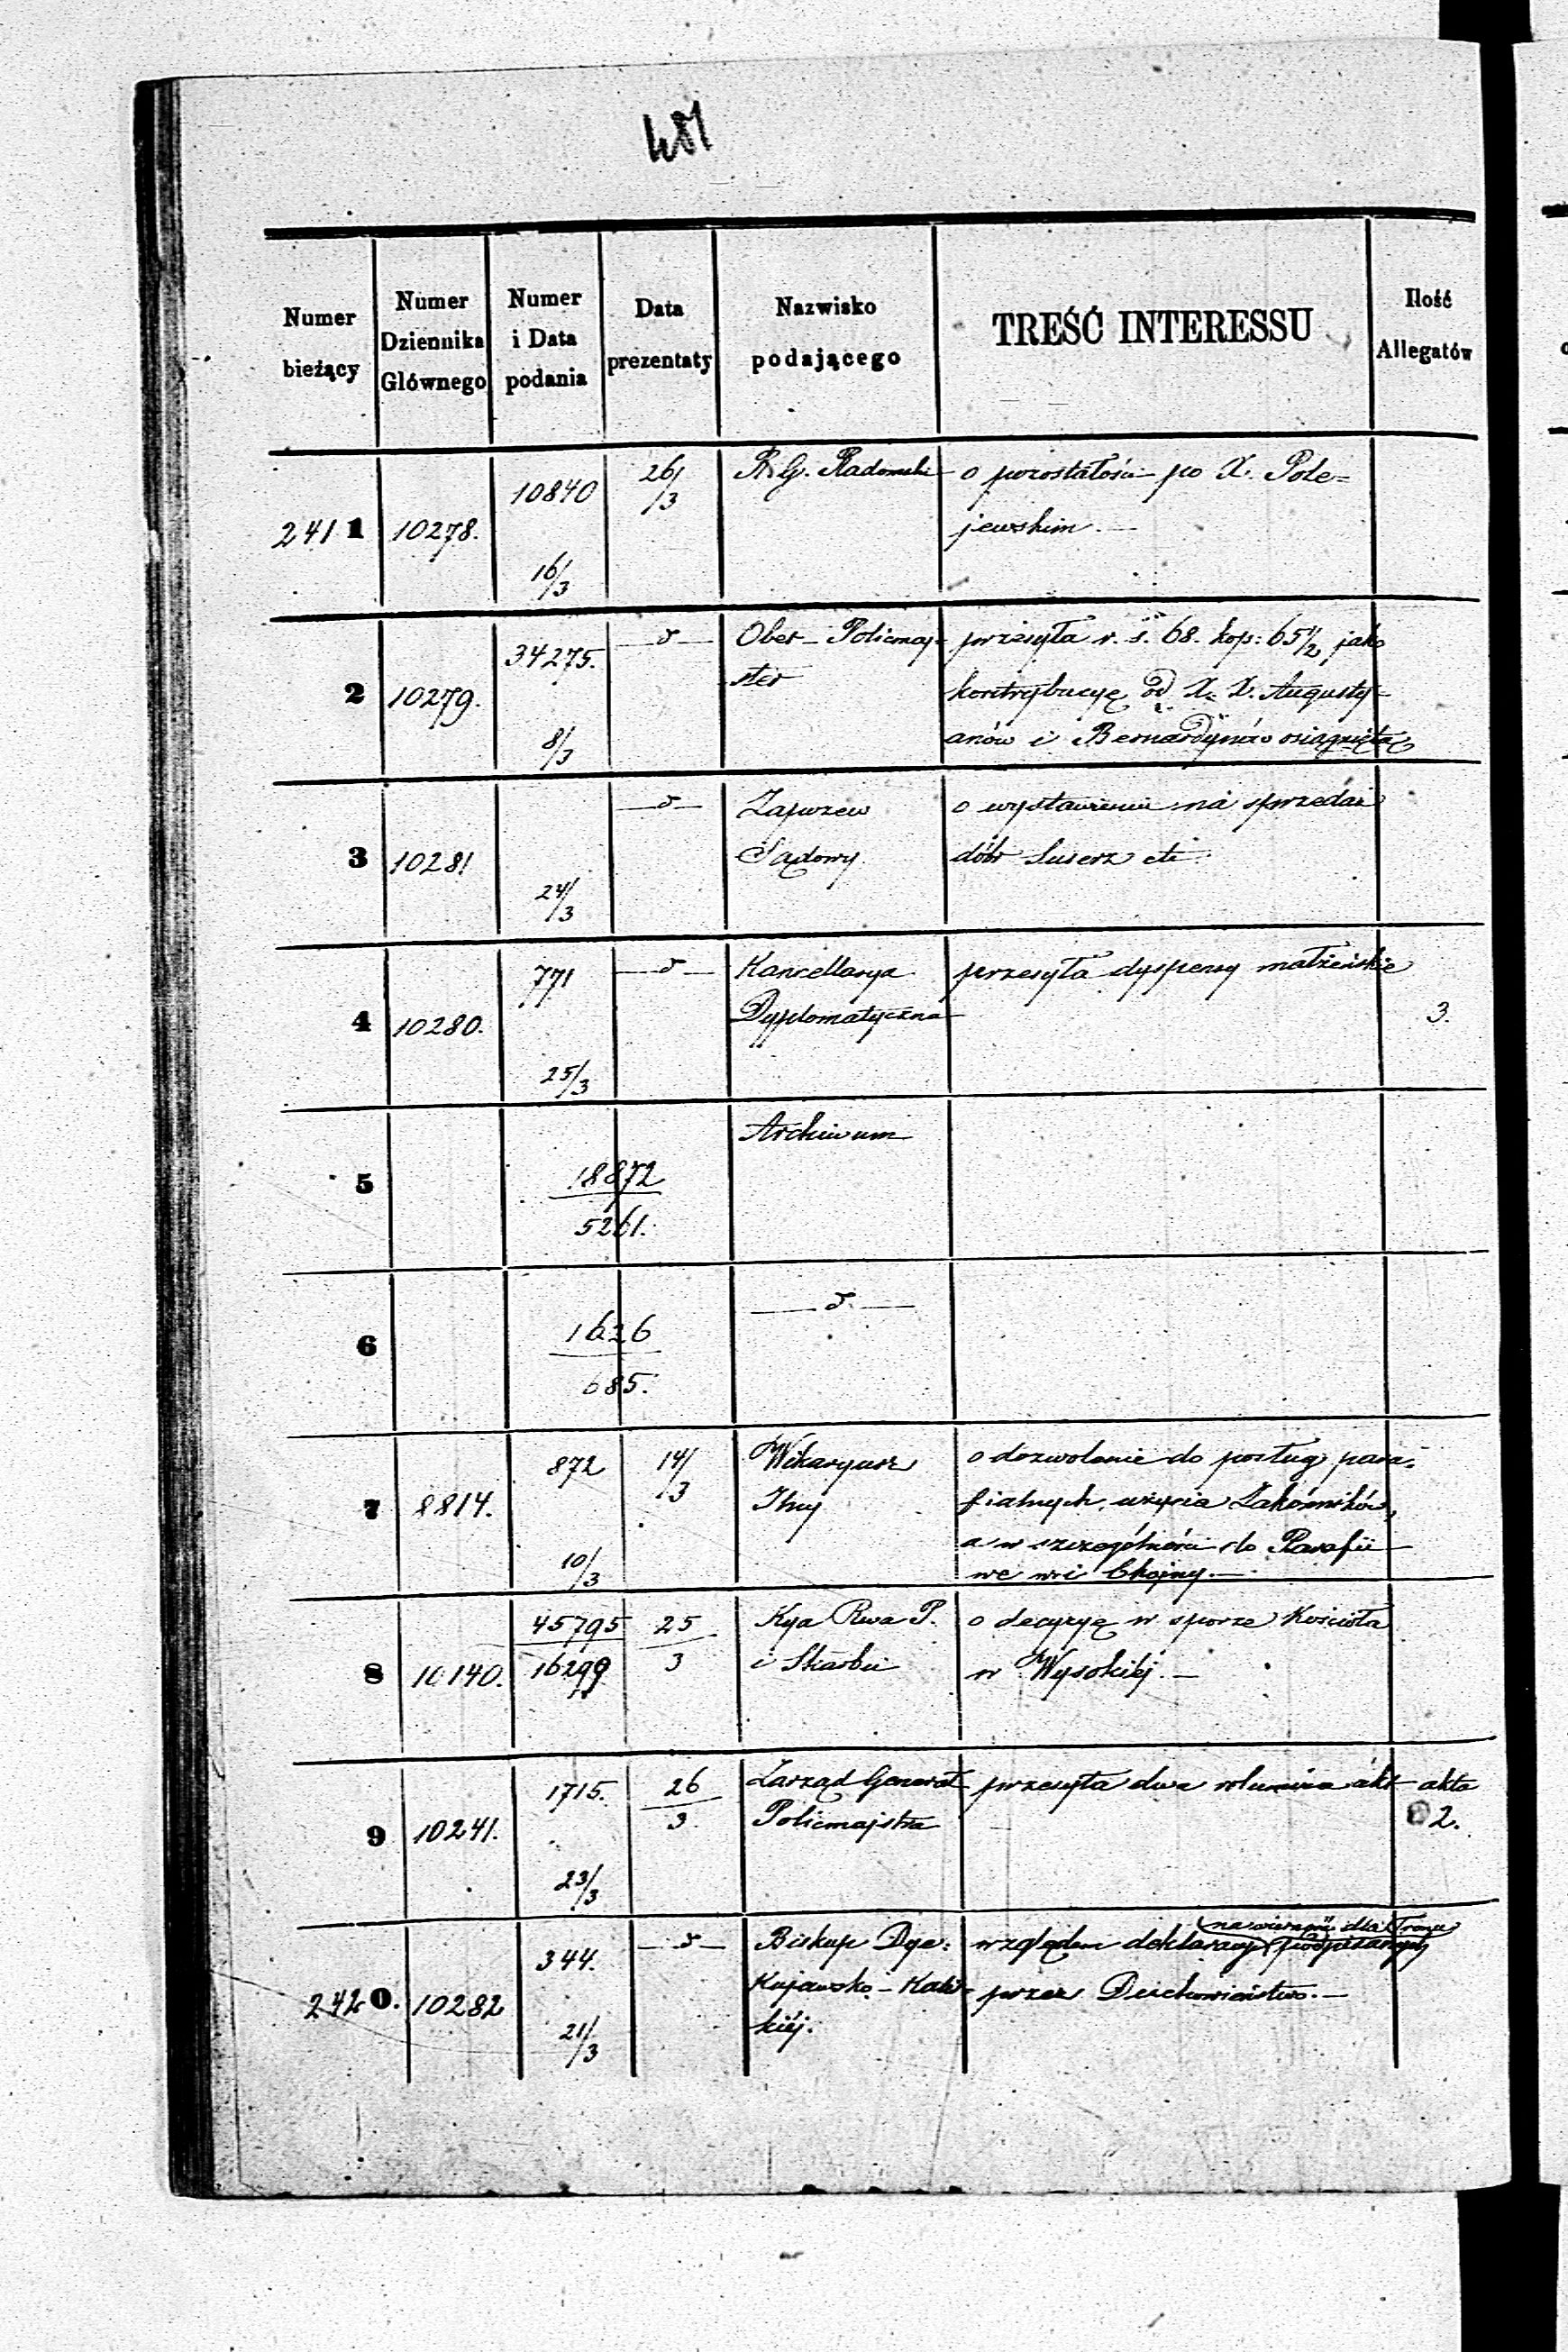 481
Numer bieżący
Numer Dziennika Głównego
Numer i Data podania
Data prezentaty
Nazwisko podającego
TREŚĆ INTERESSU
Ilość Allegatów
241 1 10278. 10840 16/3 26/3 R. G. Radomski o pozostałości po X. Pole=
jewskim.—
2 10279. 34275. 8/3 —d— Ober-Policmaj- przesyła r. s. 68. kop: 65½ jako
ster kontrybucyę od X. X. Augusty-
anów i Bernardynów osiągniętą
3 10281 24/3 —d— Zapozew o wystawienie na sprzedaż
Sądowy dóbr Suserz etc.
4 10280. 771 25/3 —d— Kancellarya przesyła dyspensy małżeńskie
Dyplomatyczna 3.
5 18872 Archiwum
5261.
6 1626 —d—
685.
7 8814. 872 10/3 14/3 Wikaryusz o dozwolenie do posług para=
fialnych użycia Zakonników,
a w szczególności do Parafii
we wsi Chojny.—
8 10140. 45795 25 Kya Rwa P. o decyzyę w sporze Kościoła
16299 3 i Skarbu w Wysokiéj.—
9 10241. 1715. 23/3 26 Zarząd Generał przesyła dwa volumina akt akta
3 Policmajstra 2.
na wierność dla Tronu
2420. 10282 344. 21/3 —d— Biskup Dye: względem deklaracyj podpisanych
Kujawsko-Kali= przez Duchowieństwo.—
kiéj.